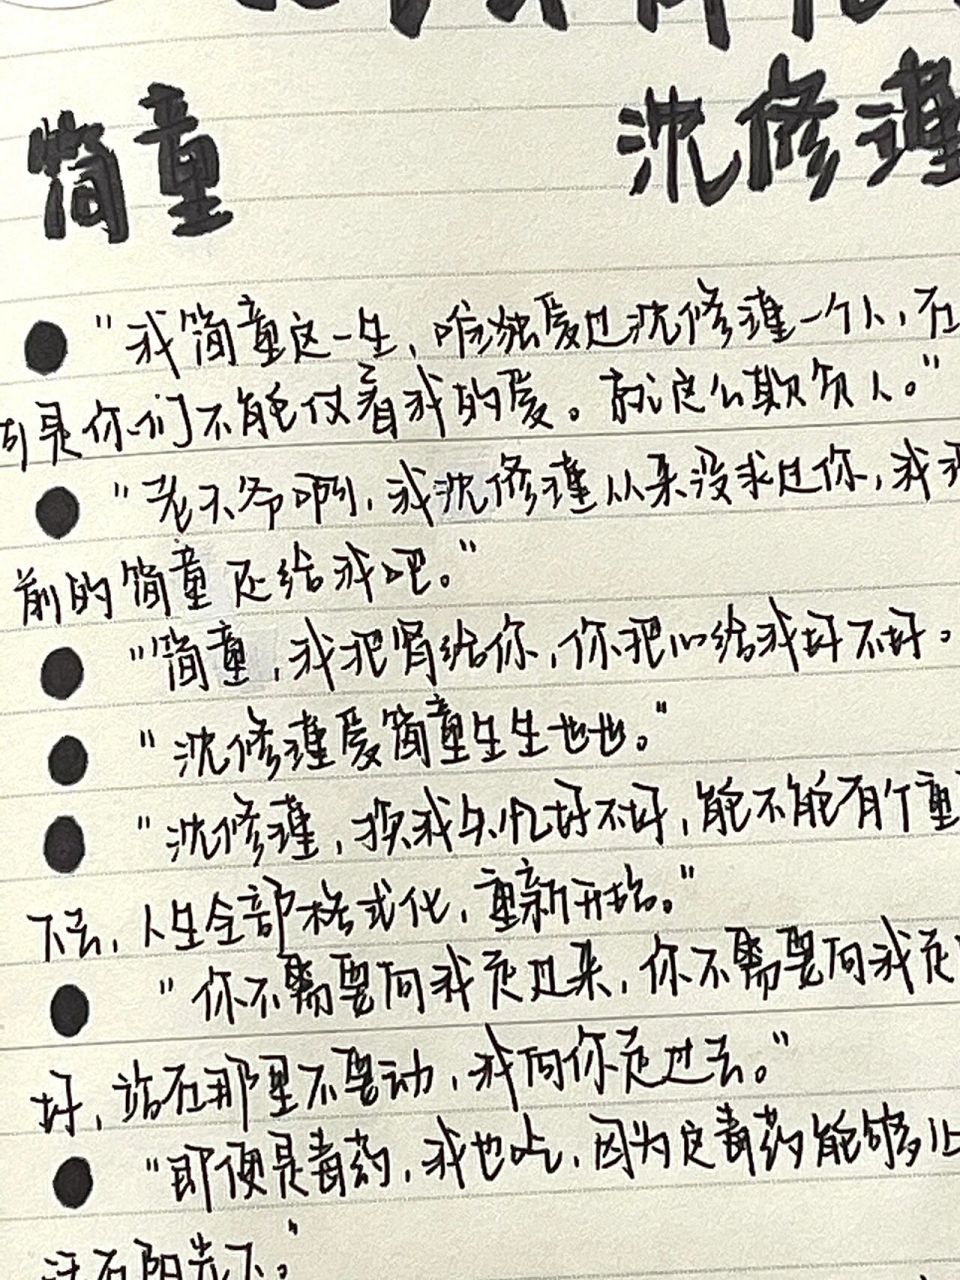 简童 沈修瑾
●"我简童这一生，唯独爱过沈修瑾一个人，在
是你们不能仗着我的爱。就这么欺负人。"
●"老天爷啊，我沈修瑾从来没求过你，我
前的简童还给我吧。"
●"简童，我把肾给你，你把心给我好不好。
●"沈修瑾爱简童生生世世。"
●"沈修瑾，换我失忆好不好，能不能有个重
下去，人生全部格式化，重新开始。"
●"你不需要向我走过来，你不需要向我走
好，站在那里不要动，我向你走过去。"
●"即便是毒药，我也吃，因为这毒药能够让
活在阳光下。"